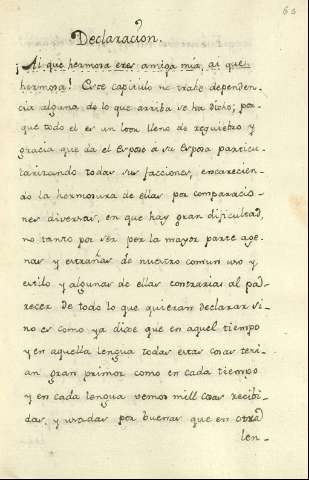 60
Declaracion.
¡Ai que hermosa eres amiga mia, ai que
hermosa! Este capitulo no trahe dependen-
cia alguna de lo que arriba se ha dicho; por-
que todo el es un loor lleno de requiebro y
gracia que da el Esposo a su Esposa particu-
larizando todas sus facciones, encarecien-
do la hermosura de ellas por comparacio-
nes diversas, en que hay gran dificultad,
no tanto por ser por la mayor parte age-
nas y estrañas de nuestro comun uso y
estilo y algunas de ellas contrarias al pa-
recer de todo lo que quieran declarar si-
no es como ya dixe que en aquel tiempo
y en aquella lengua todas estas cosas teni-
an gran primor como en cada tiempo
y en cada lengua vemos mill cosas recibi-
das, y usadas por buenas que en otra
len-